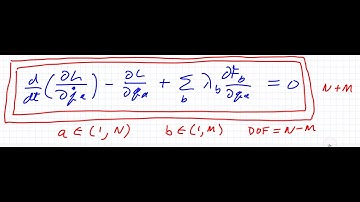 d/dt (∂L/∂q̇ₐ) − ∂L/∂qₐ + Σ_b λ_b ∂F_b/∂qₐ = 0 N+M
a ∈ (1, N) b ∈ (1, M) DOF = N−M